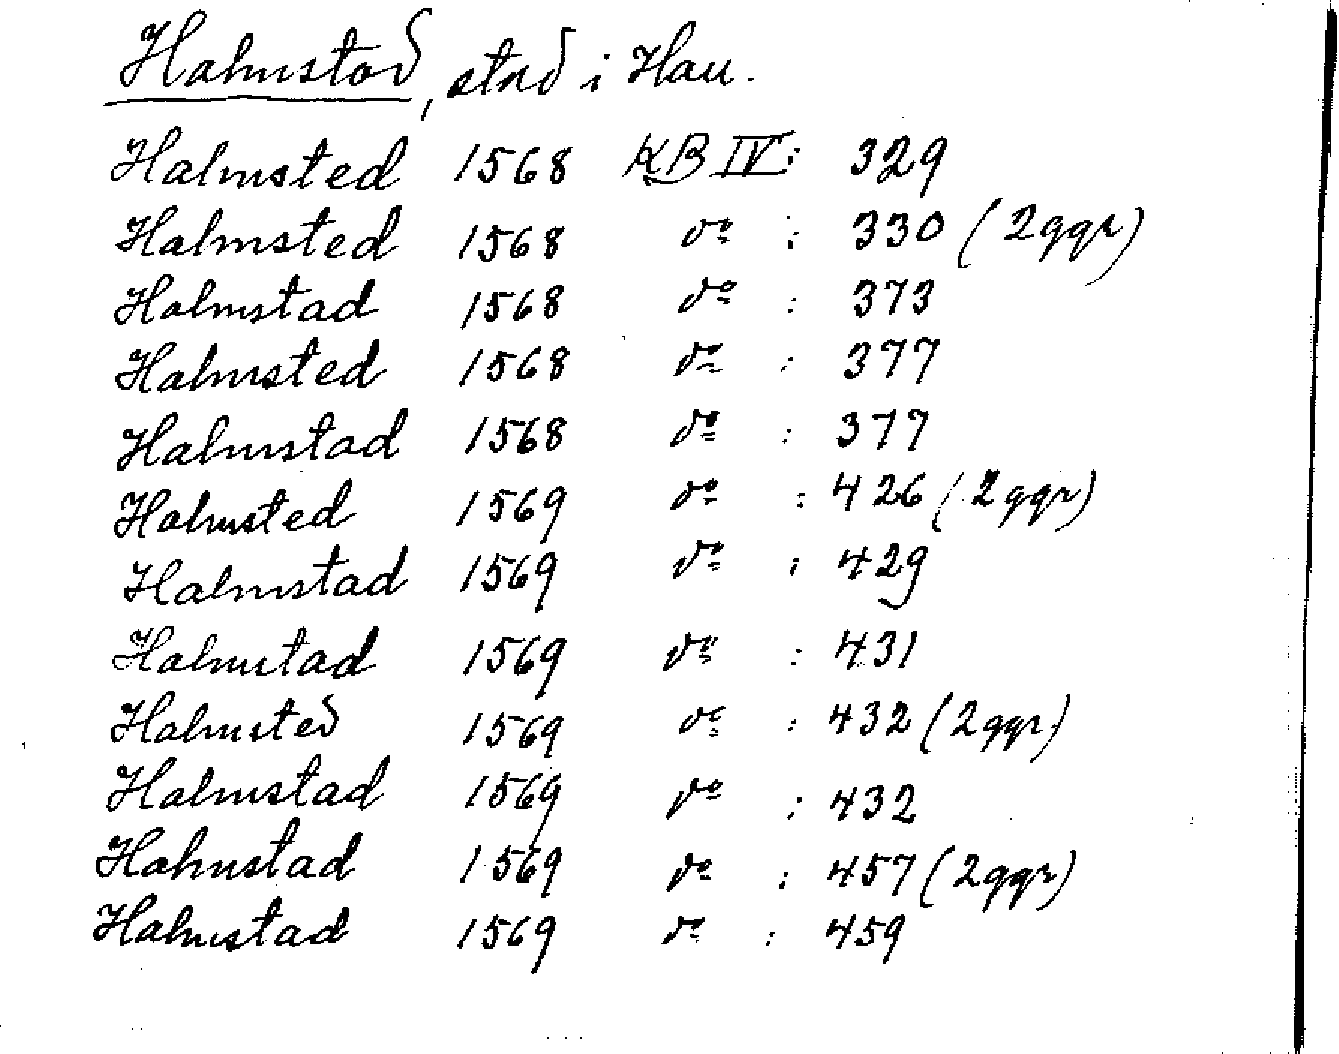 Halmstad, stad i Hall.
Halmsted 1568 KB IV: 329
Halmsted 1568 do : 330 (2ggr)
Halmstad 1568 do : 373
Halmsted 1568 do : 377
Halmstad 1568 do : 377
Halmsted 1569 do : 426 (2ggr)
Halmstad 1569 do : 429
Halmstad 1569 do : 431
Halmsted 1569 do : 432 (2ggr)
Halmstad 1569 do : 432
Halmstad 1569 do : 457 (2ggr)
Halmstad 1569 do : 459